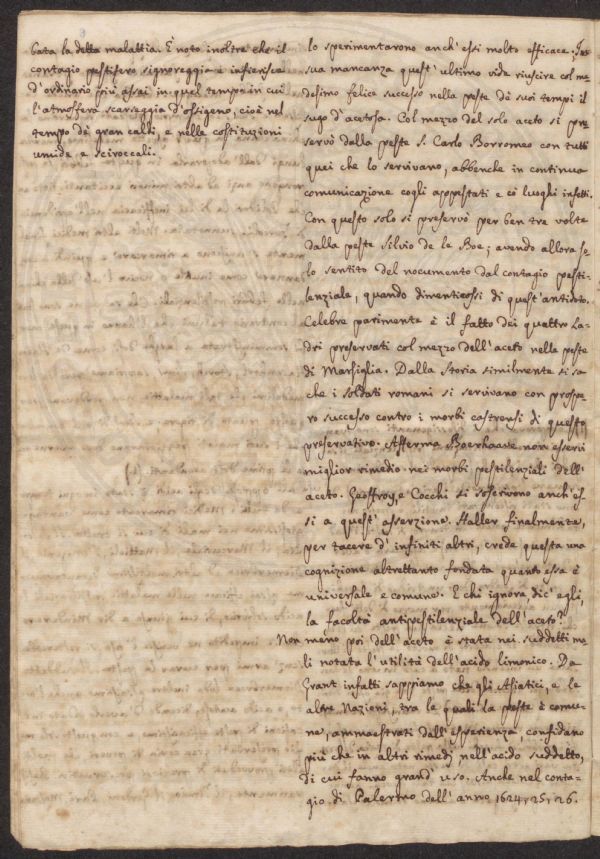 bata la detta malattia. È noto inoltre che il
contagio pestifero signoreggia e infierisce
d'ordinario più assai in quel tempo in cui
l'atmosfera scarseggia d'ossigeno, cioè nel
tempo dè gran caldi, e nelle costituzioni
umide e sciroccali.
lo sperimentarono anch'essi molto efficace. In
sua mancanza quest'ultimo vide riuscire col me
desimo felice successo nella peste dè suoi tempi il
sugo d'acetosa. Col mezzo del solo aceto si pre
servò dalla peste S. Carlo Borromeo con tutti
quei che lo servivano, abbenche in continua
comunicazione cogli appestati e cò luoghi infetti.
Con questo solo si preservò per ben tre volte
dalla peste Silvio de le Boe; avendo allora so
lo sentito del nocumento dal contagio pesti-
lenziale, quando dimenticossi di quest'antidoto.
Celebre parimente è il fatto dei quattro La-
dri preservati col mezzo dell'aceto nella peste
di Marsiglia. Dalla Storia similmente si sa
che i soldati romani si servivano con prospe
ro successo contro i morbi castrensi di questo
preservativo. Afferma Boerhaave non esservi
miglior rimedio nei morbi pestilenziali dell'
aceto. Geoffroy, e Cocchi si soscrivono anch'es
si a quest'asserzione. Haller finalmente,
per tacere d'infiniti altri, crede questa una
cognizione altrettanto fondata quanto essa è
universale e comune. E chi ignora, dic'egli,
la facoltà antipestilenziale dell'aceto?
Non meno poi dell'aceto è stata nei suddetti ma
li notata l'utilità dell'acido limonico. Da
Grant infatti sappiamo che gli Asiatici, e le
altre Nazioni, tra le quali la peste è comu-
ne, ammaestrati dall'esperienza, confidano
più che in altri rimedj nell'acido suddetto,
di cui fanno grand'uso. Anche nel conta-
gio di Palermo dell'anno 1624, 25, 26.